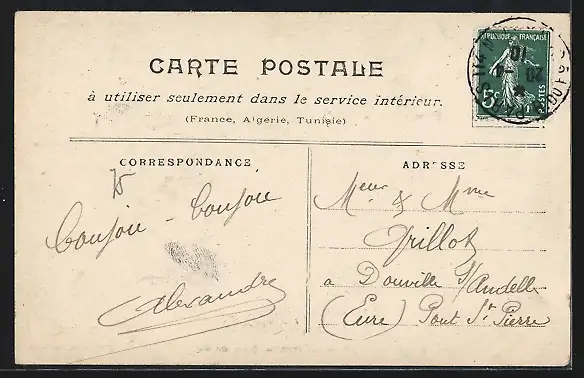 CARTE POSTALE
à utiliser seulement dans le service intérieur.
(France, Algérie, Tunisie)
REPUBLIQUE FRANÇAISE
5c
POSTES
CORRESPONDANCE
Boujou - boujou
Alexandre
ADRESSE
Meur & Mme
Grillot
a Douville s/Andelle
(Eure) Pont St Pierre